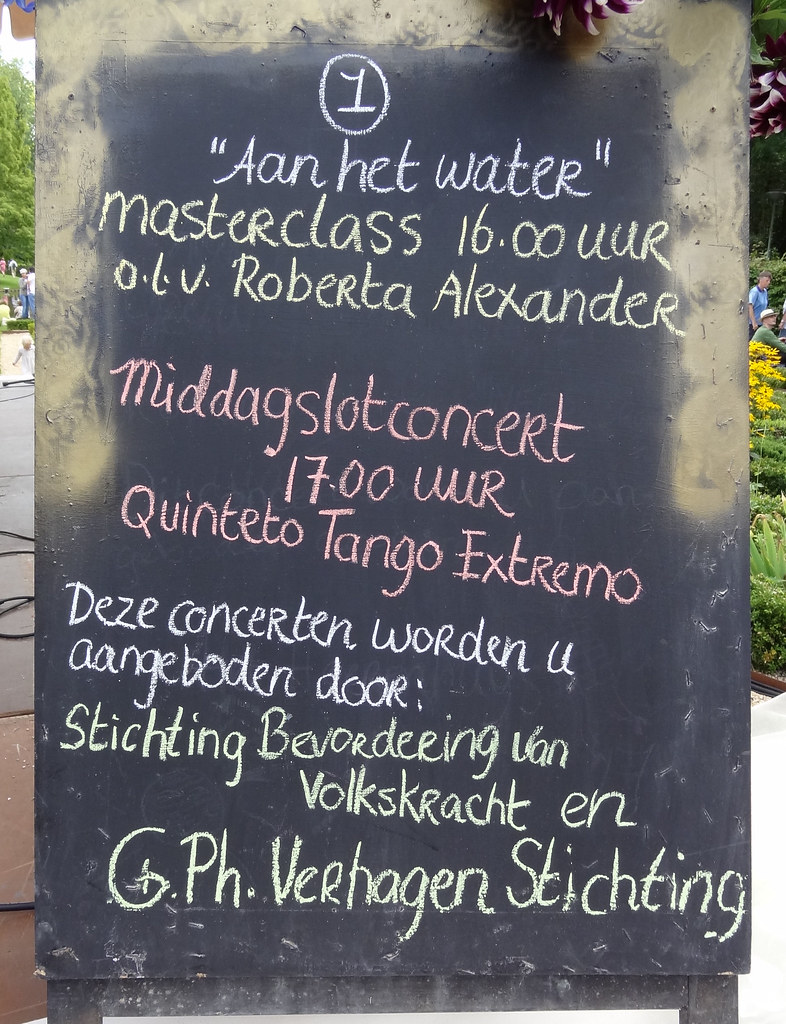 1
"Aan het water"
masterclass 16.00 uur
o.l.v. Roberta Alexander
Middagslotconcert
17.00 uur
Quinteto Tango Extremo
Deze concerten worden u
aangeboden door:
Stichting Bevordering van
Volkskracht en
G.Ph. Verhagen Stichting